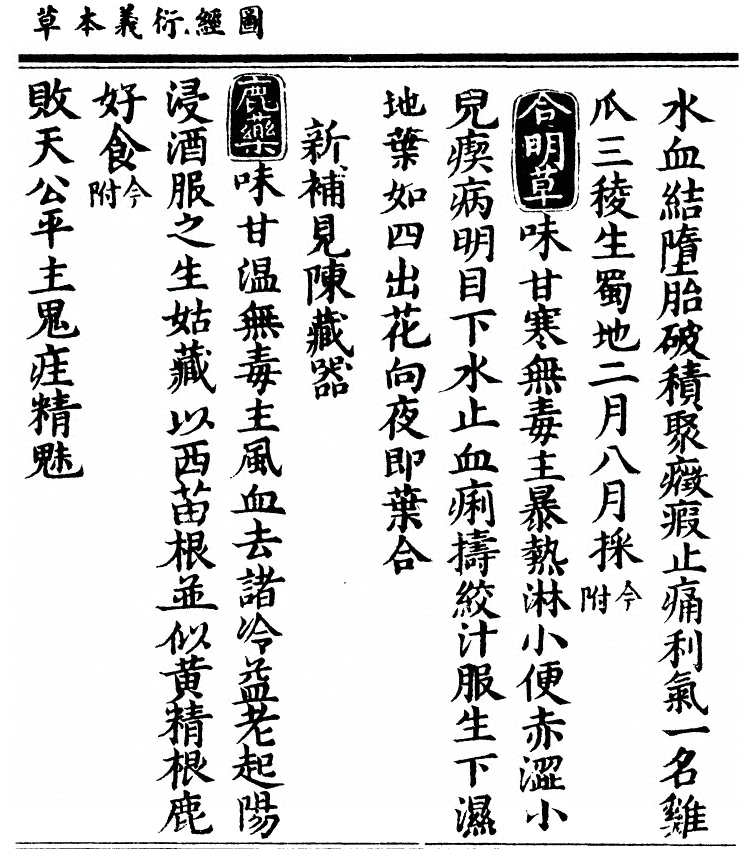 圖經衍義本草
水血結墮胎破積聚癥瘕止痛利氣一名雞
爪三稜生蜀地二月八月採今附
合明草味甘寒無毒主暴熱淋小便赤澀小
兒瘈病明目下水止血痢擣絞汁服生下濕
地葉如四出花向夜即葉合
新補見陳藏器
鹿藥味甘溫無毒主風血去諸冷益老起陽
浸酒服之生姑藏以西苗根並似黃精根鹿
好食今附
敗天公平主鬼疰精魅